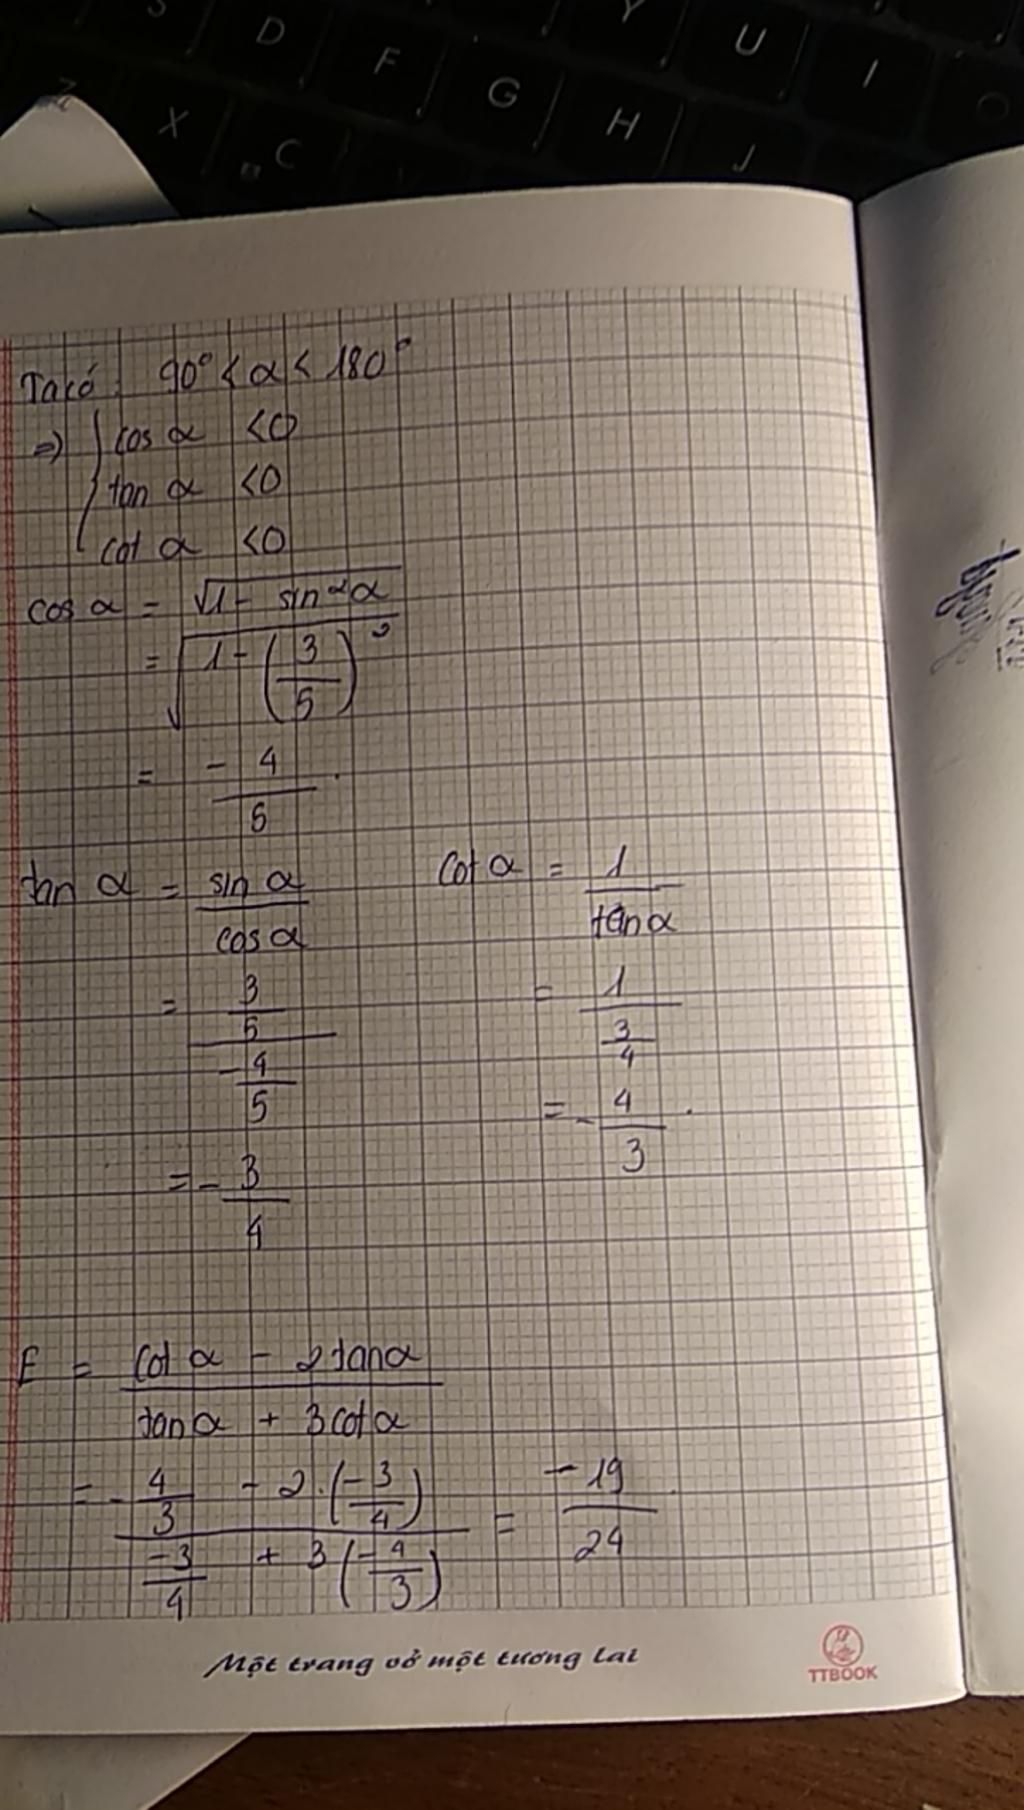 S D F G Y H U J I
Z X C
Ta có: 90° < α < 180°
=> { cos α < 0
tan α < 0
cot α < 0
cos α = √1 - sin²α
= √1 - (3/5)²
= -4/5.
tan α = sin α/cos α cot α = 1/tan α
= 3/5/-4/5 = 1/3/4
= -3/4 = -4/3.
E = cot α - 2tanα/tanα + 3cotα
= -4/3 - 2.(-3/4)/-3/4 + 3(-4/3) = -19/24.
Một trang vở một tương lai
TTBOOK